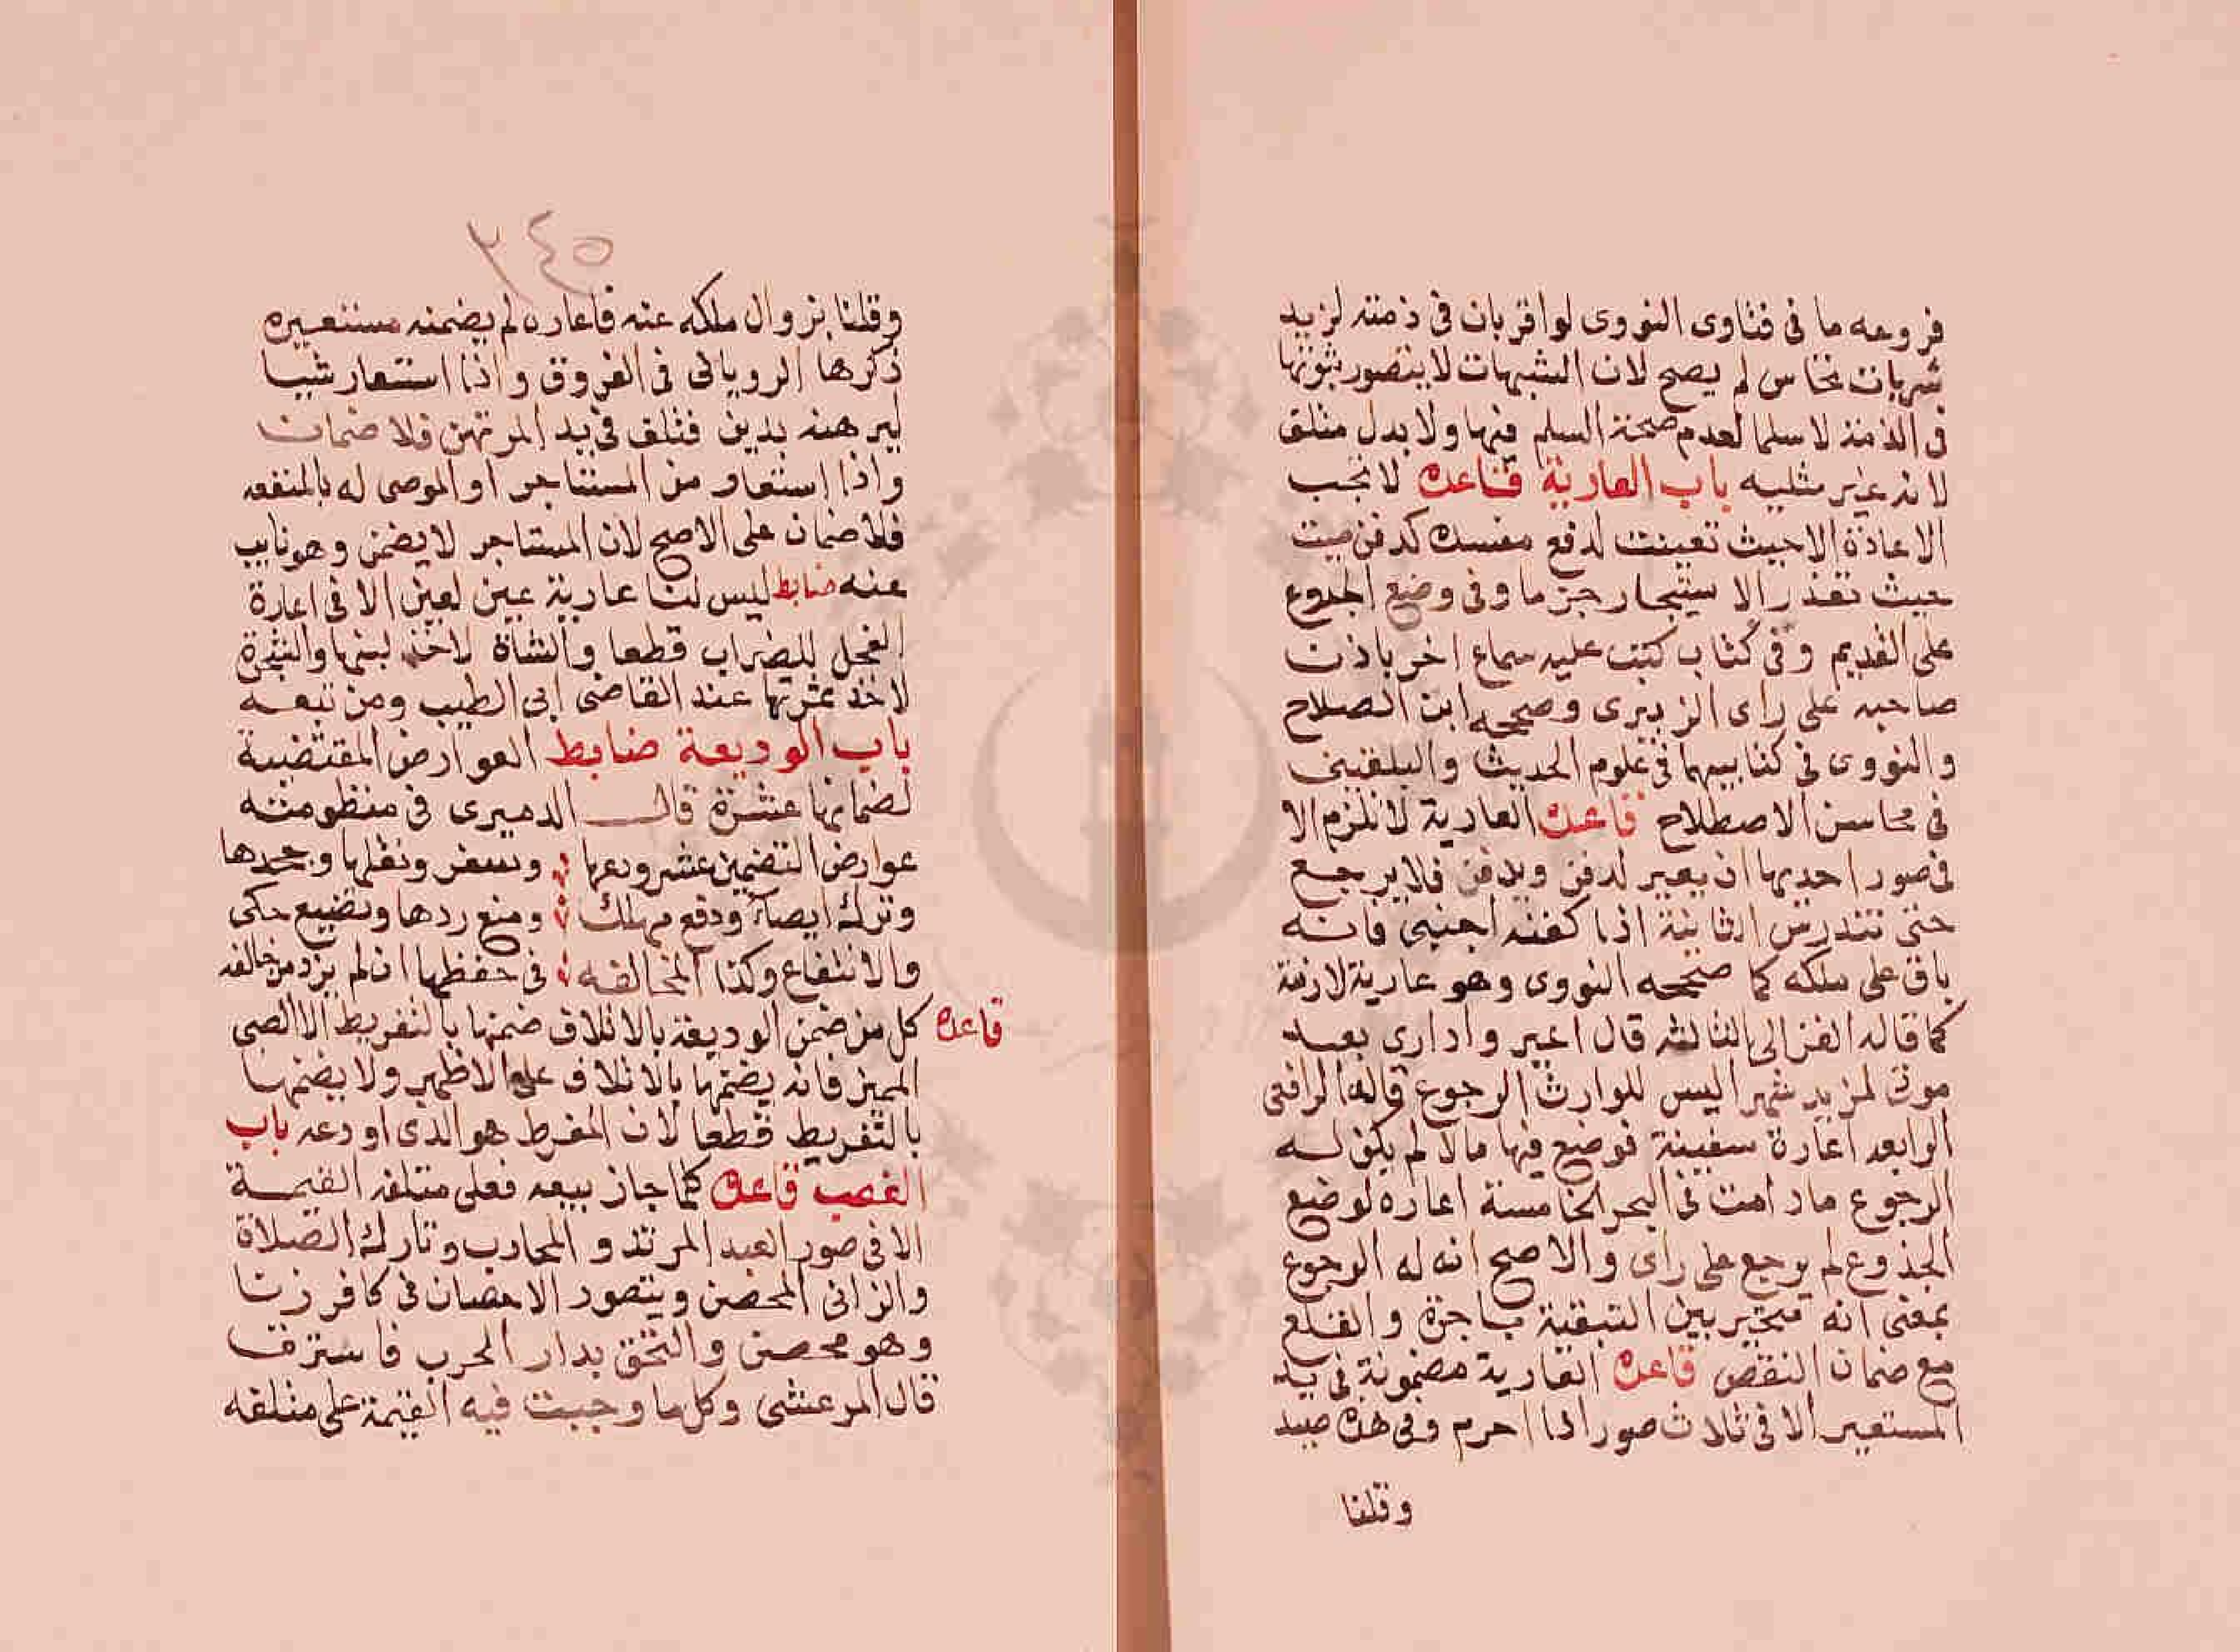 فروعه ما فى فتاوى النووى لو اقر بان فى ذمته لزيد
شربات نحاس لم يصح لان الشبهات لا يتصور ثبوتها
فى الذمة لا سلما لعدم صحة السلم فيها ولا بدل متلف
لانه غير مثليه باب العارية قاعدة لا تجب
الاعادة الا حيث تعينت لدفع مفسدة كدفن ميت
حيث تعذر الاستيجار جزما وفى وضع الجذوع
على القديم وفى كتاب كتب عليه سماع اخر باذن
صاحبه على راى الزبيرى وصححه ابن الصلاح
والنووى فى كتابيهما فى علوم الحديث والبلقينى
فى محاسن الاصطلاح قاعدة العارية لا تلزم الا
فى صور احديها ان يعير لدفن ويدفن فلا يرجع
حتى تندرس الثانية اذا كفنه اجنبى فانه
باق على ملكه كما صححه النووى وهو عارية لازمة
كما قاله الغزالى الثالثه قال اعير وادارى بعد
موتى لمزيد شهرا ليس للوارث الرجوع قاله الرافعى
الرابعه اعارة سفينة فوضع فيها مالا لم يكن له
الرجوع مادامت فى البحر الخامسة اعاره لوضع
الجذوع لم يرجع على راى والاصح انه له الرجوع
بمعنى انه متخير بين التبقية باجرة والقلع
مع ضمان النقص قاعدة العارية مضمونة فى يد
المستعير الا فى ثلاث صور اذا احرم وفى هذه صيد
وقلنا
٢٤٥
وقلنا بزوال ملكه عنه فاعاره لم يضمنه مستعيره
ذكرها الرويانى فى الفروق واذا استعار شيا
ليرهنه بدين فتلف فى يد المرتهن فلا ضمان
واذا استعار من المستاجر او الموصى له بالمنفعه
فلا ضمان على الاصح لان المستاجر لا يضمن وهو نايب
عنه ضابط ليس لنا عارية عين لعين الا فى اعارة
الفحل للضراب قطعا والشاة لاخذ لبنها والشجرة
لاخذ ثمرتها عند القاضى ابى الطيب ومن تبعه
باب الوديعة ضابط العوارض المقتضية
لضمانها عشرة قال الدميرى فى منظومته
عوارض التضمين عشر ودعها وسفر ونقلها وجحدها
وترك ايصاء ودفع مهلك ومنع ردها وتضييع حكى
والانتفاع وكذا المخالفه فى حفظها ان لم يزد من خالفه
قاعدة كل من ضمن الوديعة بالاتلاف ضمنها بالتفريط الا الصبى
المميز فانه يضمنها بالاتلاف على الاظهر ولا يضمنها
بالتفريط قطعا لان المفرط هو الذى اودعه باب
الغصب قاعدة كلما جاز بيعه فعلى متلفه القيمة
الا فى صور العبد المرتد و المحارب وتارك الصلاة
والزانى المحصن ويتصور الاحصان فى كافر زنا
وهو محصن والتحق بدار الحرب فاسترق
قال المرعشى وكل ما وجبت فيه القيمة على متلفه